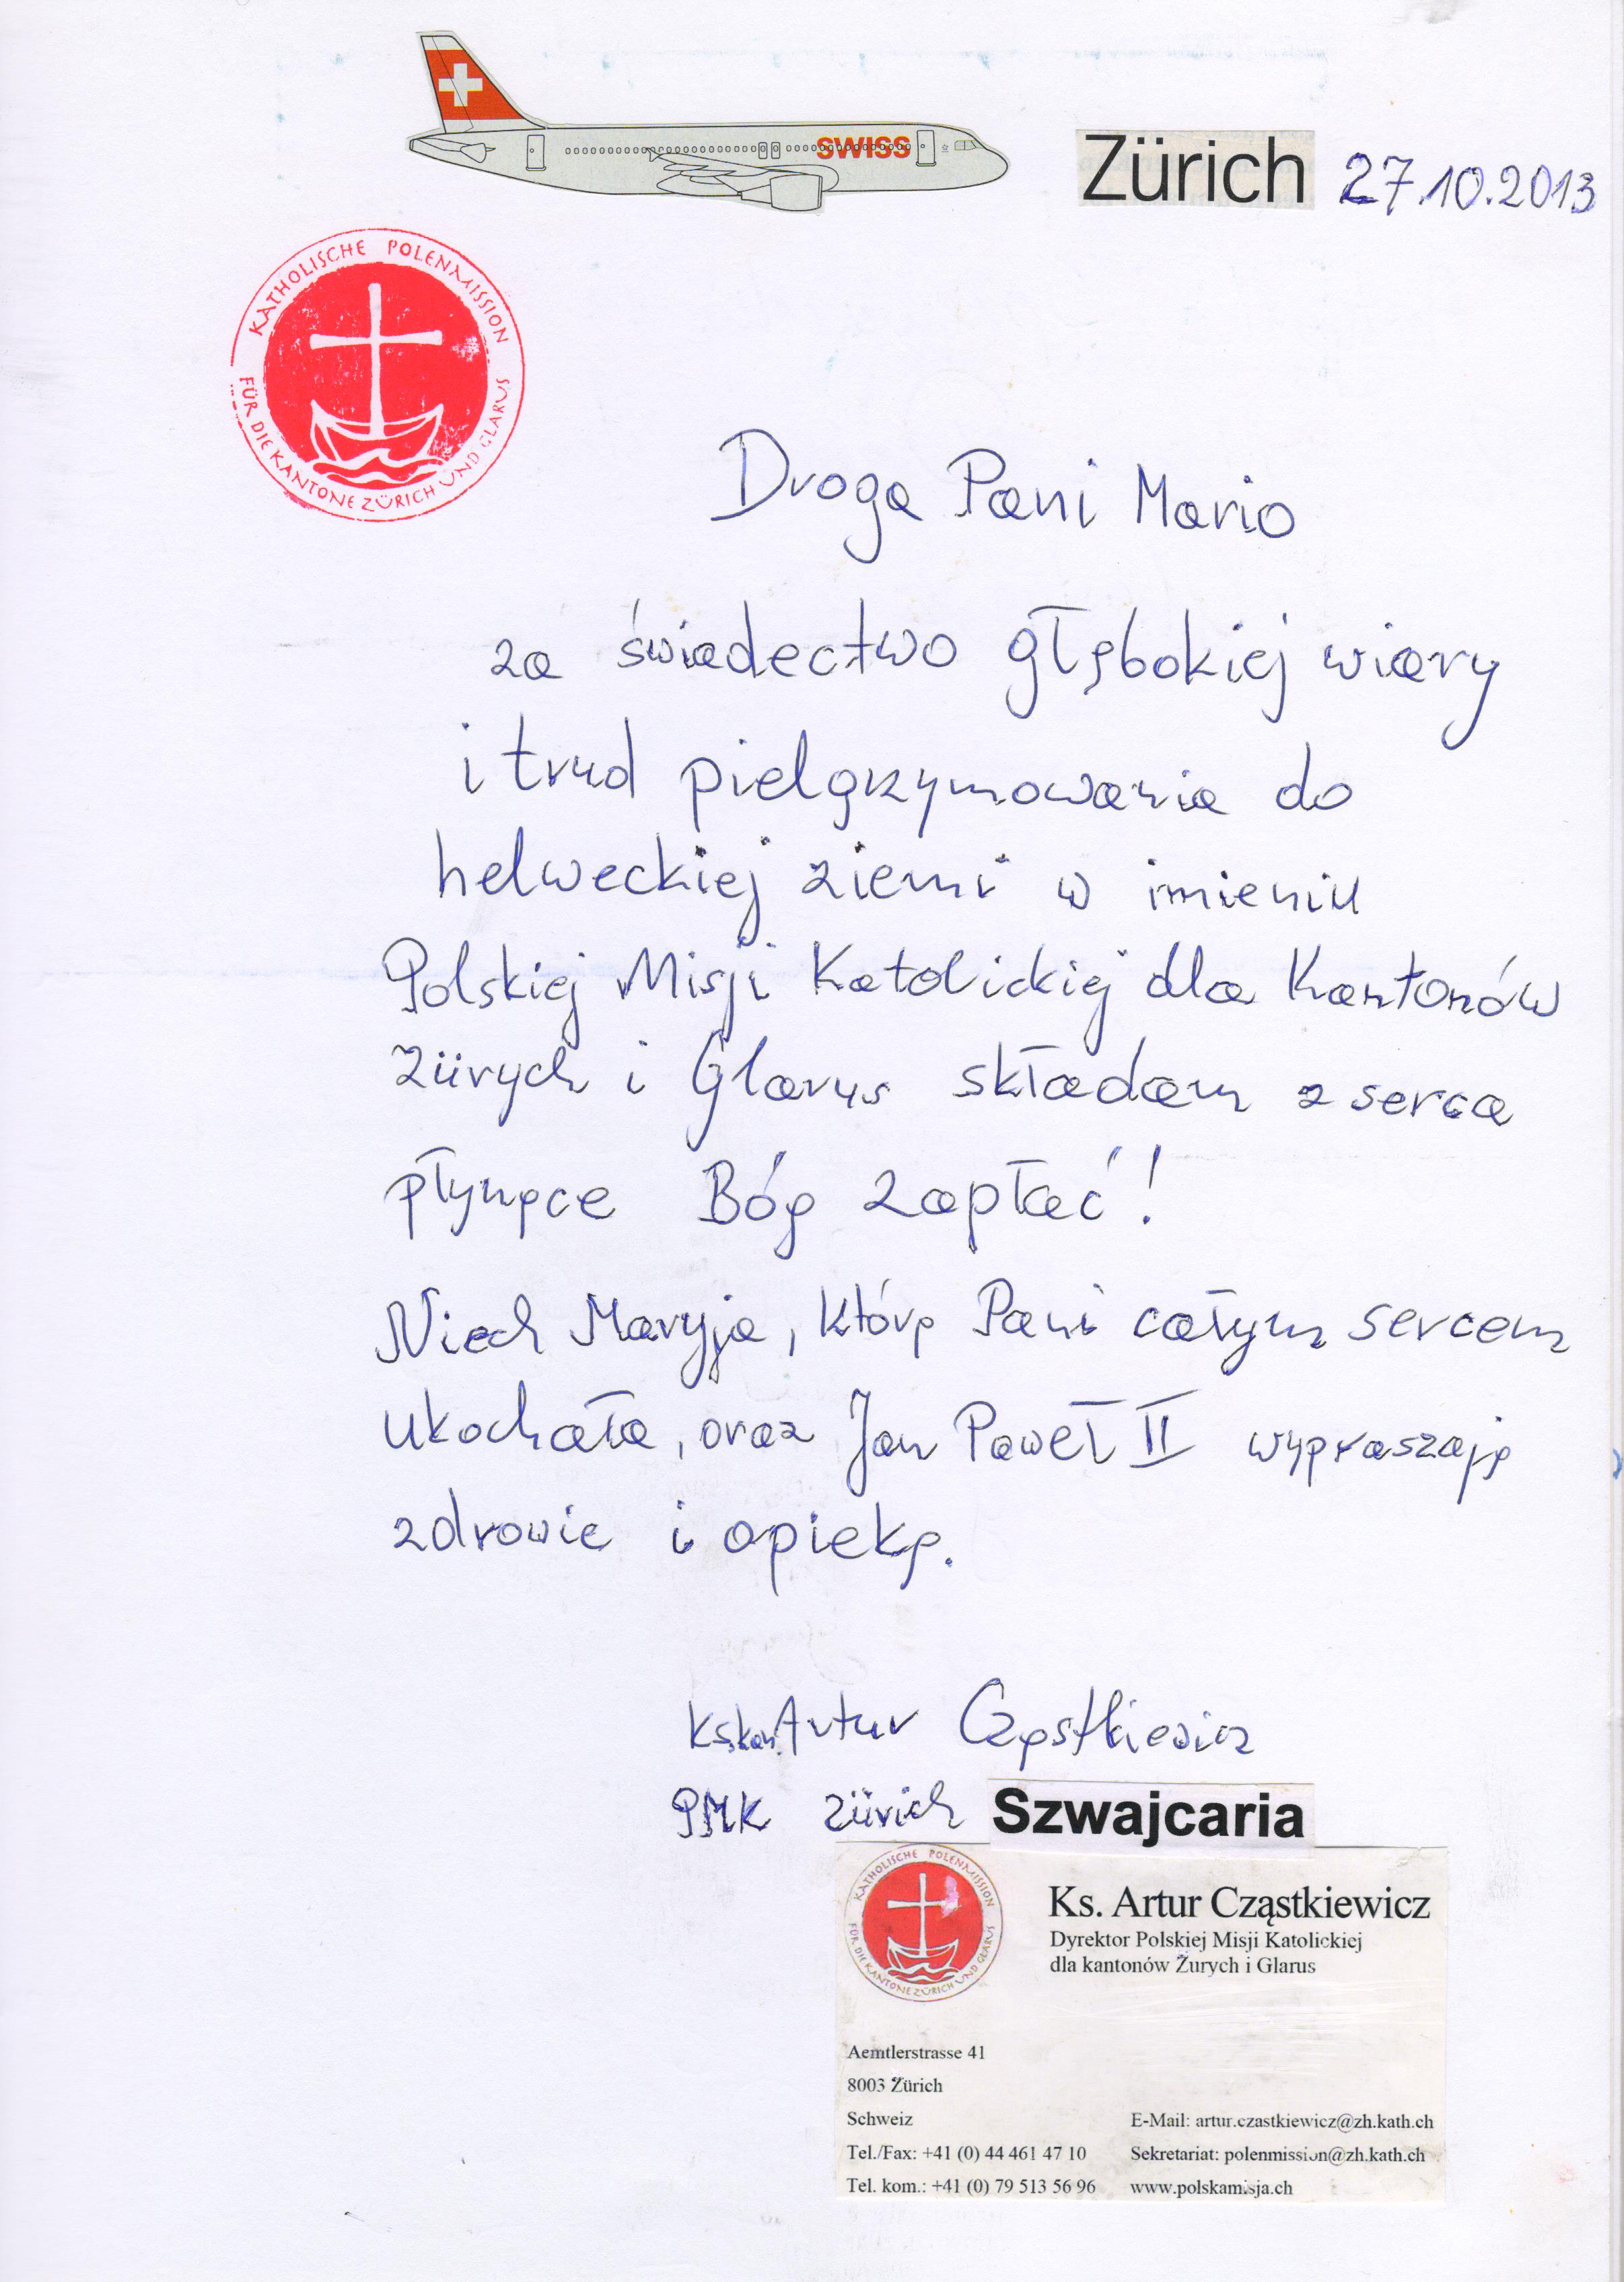 SWISS
Zürich 27.10.2013
KATHOLISCHE POLENMISSION
FÜR DIE KANTONE ZÜRICH UND GLARUS
Droga Pani Mario
za świadectwo głębokiej wiary
i trud pielgrzymowania do
helweckiej ziemi w imieniu
Polskiej Misji Katolickiej dla Kantonów
Zürych i Glarus składam z serca
płynące Bóg zapłać!
Niech Maryja, którą Pani całym sercem
ukochała, oraz Jan Paweł II wypraszają
zdrowie i opiekę.
Ks. kan. Artur Cząstkiewicz
PMK Zürich Szwajcaria
KATHOLISCHE POLENMISSION
FÜR DIE KANTONE ZÜRICH UND GLARUS
Ks. Artur Cząstkiewicz
Dyrektor Polskiej Misji Katolickiej
dla kantonów Zurych i Glarus
Aemtlerstrasse 41
8003 Zürich
Schweiz E-Mail: artur.czastkiewicz@zh.kath.ch
Tel./Fax: +41 (0) 44 461 47 10 Sekretariat: polenmission@zh.kath.ch
Tel. kom.: +41 (0) 79 513 56 96 www.polskamisja.ch